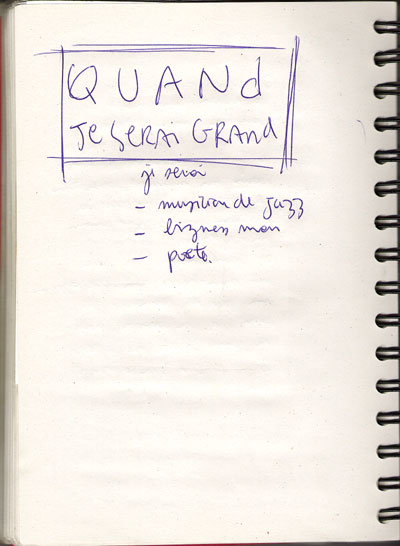 QUANd
JE SERAi GRANd
je serai
- musicien de jazz
- bizness man
- poète.